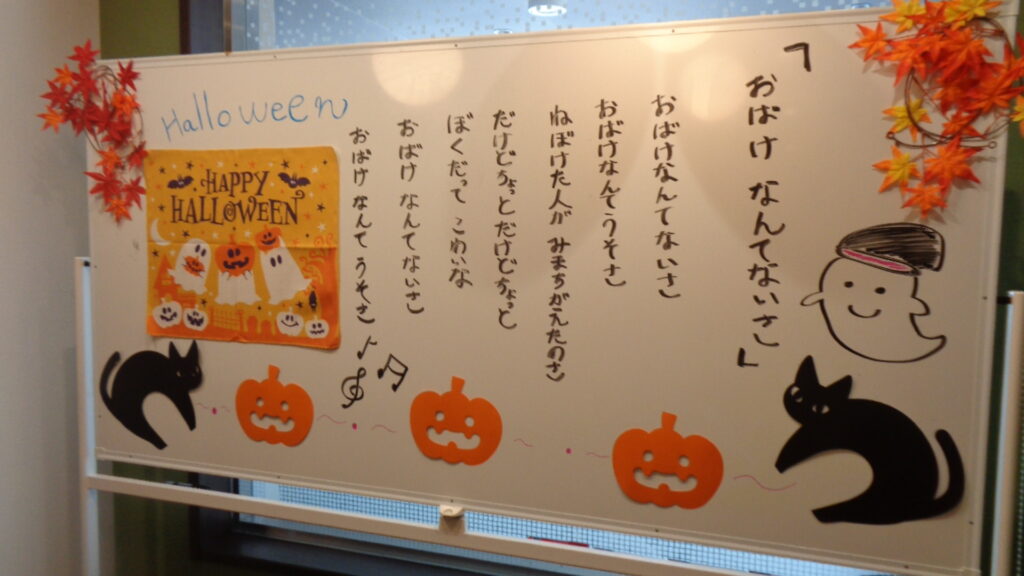 「おばけ なんてないさ」
おばけなんてないさ
おばけなんてうそさ
ねぼけた人が みまちがえたのさ
だけどちょっとだけどちょっと
ぼくだって こわいな
おばけ なんてないさ
おばけ なんて うそさ
Halloween
HAPPY
HALLOWEEN